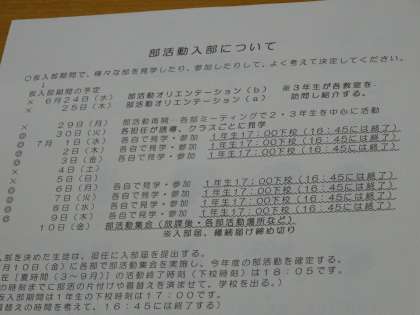 部活動入部について
○仮入部期間で、様々な部を見学したり、参加したりして、よく考えて決定してください。
仮入部期間の予定
× 6月24日(水) 部活動オリエンテーション(b) ※3年生が各教室を
× 25日(木) 部活動オリエンテーション(a) 訪問し紹介する。
× 29日(月) 部活動再開・各部ミーティングで2・3年生を中心に活動
◎ 30日(火) 各担任が誘導、クラスごとに見学
◎ 7月 1日(水) 各自で見学・参加 1年生17:00下校(16:45には終了)
◎ 2日(木) 各自で見学・参加 1年生17:00下校(16:45には終了)
◎ 3日(金) 各自で見学・参加 1年生17:00下校(16:45には終了)
× 4日(土)
× 5日(日)
◎ 6日(月) 各自で見学・参加 1年生17:00下校(16:45には終了)
◎ 7日(火) 各自で見学・参加 1年生17:00下校(16:45には終了)
◎ 8日(水) 各自で見学・参加 1年生17:00下校(16:45には終了)
◎ 9日(木) 各自で見学・参加 1年生17:00下校(16:45には終了)
10日(金) 部活動集会(放課後・各部活動場所など)
※入部届、継続届け締め切り
入部を決めた生徒は、担任に入部届を提出する。
月10日(金)に各部で部活動集会を実施し、今年度の部活動を確定する。
在[夏時間(3~9月)]の活動終了時刻(下校時刻)は18:05です。
の時刻までに部活の片付けや着替えを済ませて、学校を出る。)
仮入部期間は1年生の下校時刻は17:00です。
着替えの時間を考えて、16:45には終了する)